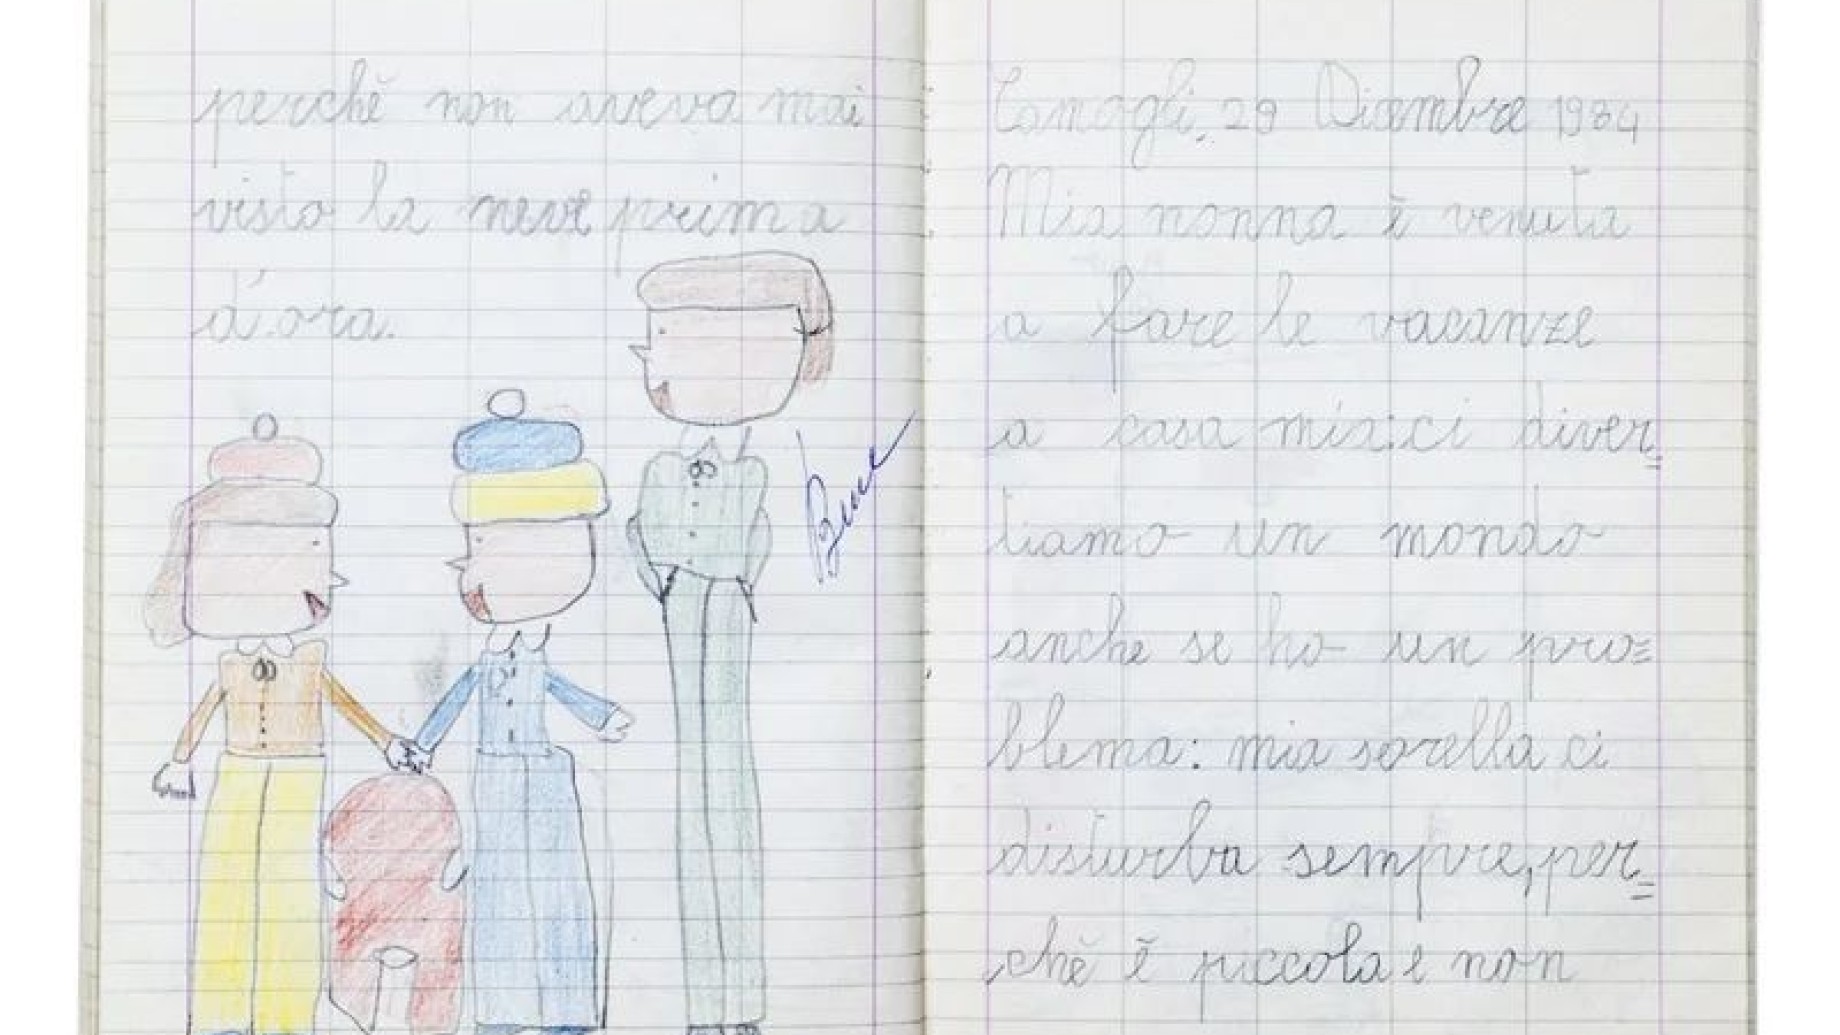 perchè non aveva mai
visto la neve prima
d'ora.
Bene
Camogli, 29 Dicembre 1984
Mia nonna è venuta
a fare le vacanze
a casa mia: ci diver=
tiamo un mondo
anche se ho un pro=
blema: mia sorella ci
disturba sempre, per=
chè è piccola e non